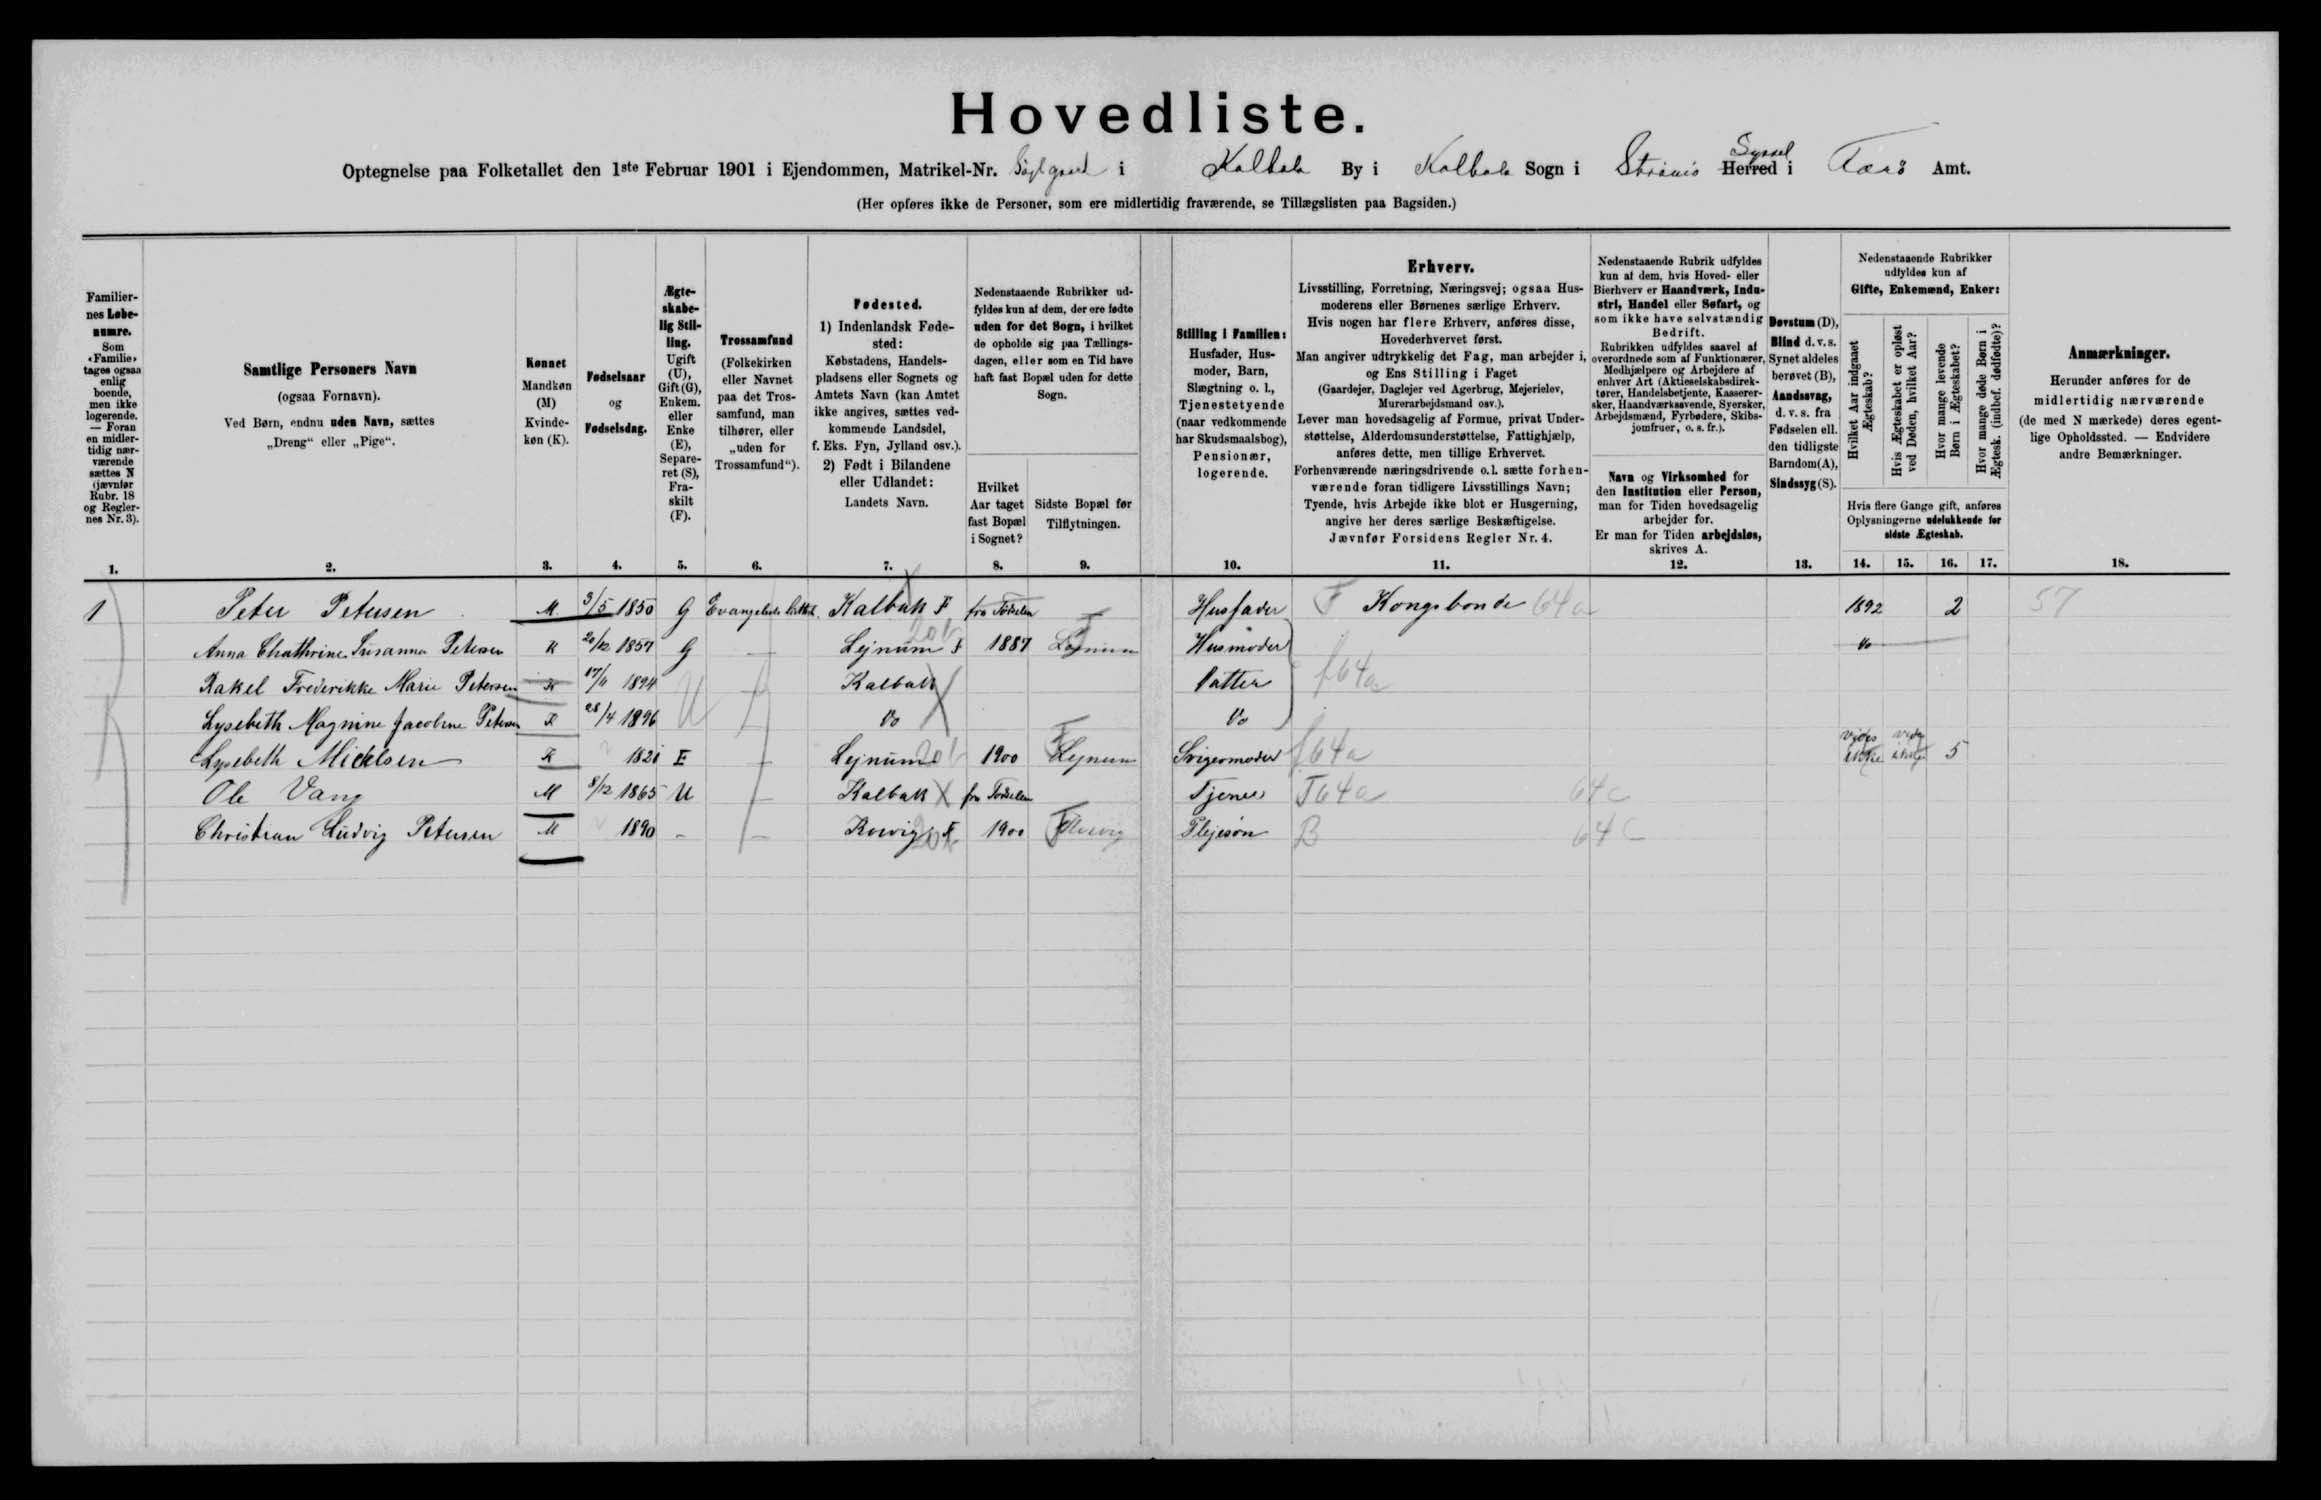 Hovedliste.
Optegnelse paa Folketallet den 1ste Februar 1901 i Ejendommen, Matrikel-Nr. i Kalbak By i Kalbak Sogn i Strømø Herred Syssel i Færø Amt.
(Her opføres ikke de Personer, som ere midlertidig fraværende, se Tillægslisten paa Bagsiden.)
Familier-
nes Løbe-
numre.
Som
«Familie»
tages ogsaa
enlig
boende,
men ikke
logerende.
— Foran
en midler-
tidig nær-
værende
sættes N
(jævnfør
Rubr. 18
og Regler-
nes Nr. 3).
1.
Samtlige Personers Navn
(ogsaa Fornavn).
Ved Børn, endnu uden Navn, sættes
„Dreng“ eller „Pige“.
2.
Kønnet
Mandkøn
(M)
Kvinde-
køn (K).
3.
Fødselsaar
og
Fødselsdag.
4.
Ægte-
skabe-
lig Stil-
ling.
Ugift
(U),
Gift (G),
Enkem.
eller
Enke
(E),
Separe-
ret (S),
Fra-
skilt
(F).
5.
Trossamfund
(Folkekirken
eller Navnet
paa det Tros-
samfund, man
tilhører, eller
„uden for
Trossamfund“).
6.
Fødested.
1) Indenlandsk Føde-
sted:
Købstadens, Handels-
pladsens eller Sognets og
Amtets Navn (kan Amtet
ikke angives, sættes ved-
kommende Landsdel,
f. Eks. Fyn, Jylland osv.).
2) Født i Bilandene
eller Udlandet:
Landets Navn.
7.
Nedenstaaende Rubrikker ud-
fyldes kun af dem, der ere fødte
uden for det Sogn, i hvilket
de opholde sig paa Tællings-
dagen, eller som en Tid have
haft fast Bopæl uden for dette
Sogn.
Hvilket
Aar taget
fast Bopæl
i Sognet?
8.
Sidste Bopæl før
Tilflytningen.
9.
Stilling i Familien:
Husfader, Hus-
moder, Barn,
Slægtning o. l.,
Tjenestetyende
(naar vedkommende
har Skudsmaalsbog),
Pensionær,
logerende.
10.
Erhverv.
Livsstilling, Forretning, Næringsvej; ogsaa Hus-
moderens eller Børnenes særlige Erhverv.
Hvis nogen har flere Erhverv, anføres disse,
Hovederhvervet først.
Man angiver udtrykkelig det Fag, man arbejder i,
og Ens Stilling i Faget
(Gaardejer, Daglejer ved Agerbrug, Mejerielev,
Murerarbejdsmand osv.).
Lever man hovedsagelig af Formue, privat Under-
støttelse, Alderdomsunderstøttelse, Fattighjælp,
anføres dette, men tillige Erhvervet.
Forhenværende næringsdrivende o.l. sætte forhen-
værende foran tidligere Livsstillings Navn;
Tyende, hvis Arbejde ikke blot er Husgerning,
angive her deres særlige Beskæftigelse.
Jævnfør Forsidens Regler Nr. 4.
11.
Nedenstaaende Rubrik udfyldes
kun af dem, hvis Hoved- eller
Bierhverv er Haandværk, Indu-
stri, Handel eller Søfart, og
som ikke have selvstændig
Bedrift.
Rubrikken udfyldes saavel af
overordnede som af Funktionærer,
Medhjælpere og Arbejdere af
enhver Art (Aktieselskabsdirek-
tører, Handelsbetjente, Kasserer-
sker, Haandværkssvende, Syersker,
Arbejdsmænd, Fyrbødere, Skibs-
jomfruer, o. s. fr.).
Navn og Virksomhed for
den Institution eller Person,
man for Tiden hovedsagelig
arbejder for.
Er man for Tiden arbejdsløs,
skrives A.
12.
Døvstum (D),
Blind d. v. s.
Synet aldeles
berøvet (B),
Aandssvag,
d. v. s. fra
Fødselen ell.
den tidligste
Barndom (A),
Sindssyg (S).
13.
Nedenstaaende Rubrikker
udfyldes kun af
Gifte, Enkemænd, Enker:
Hvilket Aar indgaaet
Ægteskab?
Hvis Ægteskabet er opløst
ved Døden, hvilket Aar?
Hvor mange levende
Børn i Ægteskabet?
Hvor mange døde Børn i
Ægtesk. (indbef. dødfødte)?
Hvis flere Gange gift, anføres
Oplysningerne udelukkende for
sidste Ægteskab.
14.
15.
16.
17.
Anmærkninger.
Herunder anføres for de
midlertidig nærværende
(de med N mærkede) deres egent-
lige Opholdssted. — Endvidere
andre Bemærkninger.
18.
1 Peter Petersen M 3/5 1850 G Kalbak F fra Fødselen Husfader F Kongsbonde 64a 1892 2 57
Anna Chathrine Susanna Petersen K 20/12 1857 G — Lejnum F 20b 1887 Lejnum Husmoder do
Rakel Frederikke Marie Petersen K 17/11 1894 U — Kalbak Datter f64a
Lysebeth Magnine Jacobine Petersen K 28/4 1896 U — Do Do
Lysebeth Mickelsen K 1821 E — Lejnum 20b 1900 Lejnum Svigermoder f64a vides ikke vides ikke 5
Ole Vang M 8/12 1865 U — Kalbak fra Fødselen Tjener T64a 64c
Christian Ludvig Petersen M 1890 — — 1900 Plejesøn B 64c